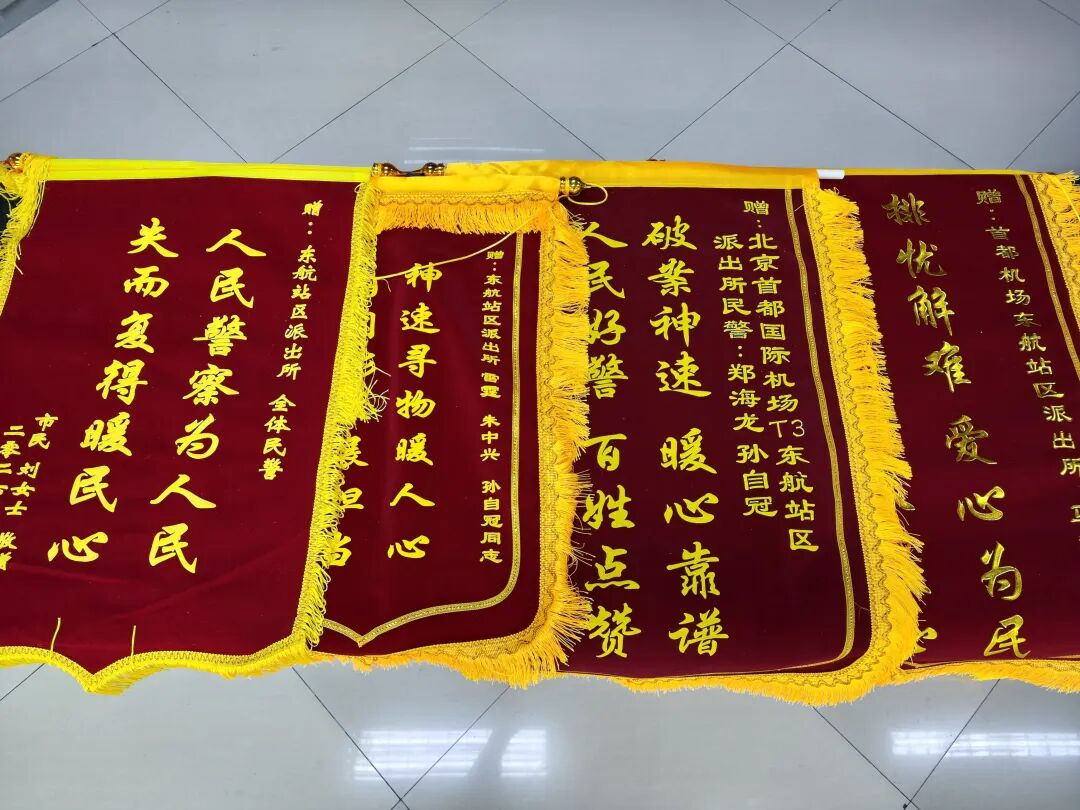 赠:东航站区派出所 全体民警
人民警察为人民
失而复得暖民心
市民 刘女士
二零二
赠:东航站区派出所 雷霆 朱中兴 孙自冠同志
神速寻物暖人心
担当
赠:北京首都国际机场T3东航站区
派出所民警:郑海龙 孙自冠
破案神速 暖心靠谱
人民好警 百姓点赞
赠:首都机场东航站区派出所
排忧解难爱心为民